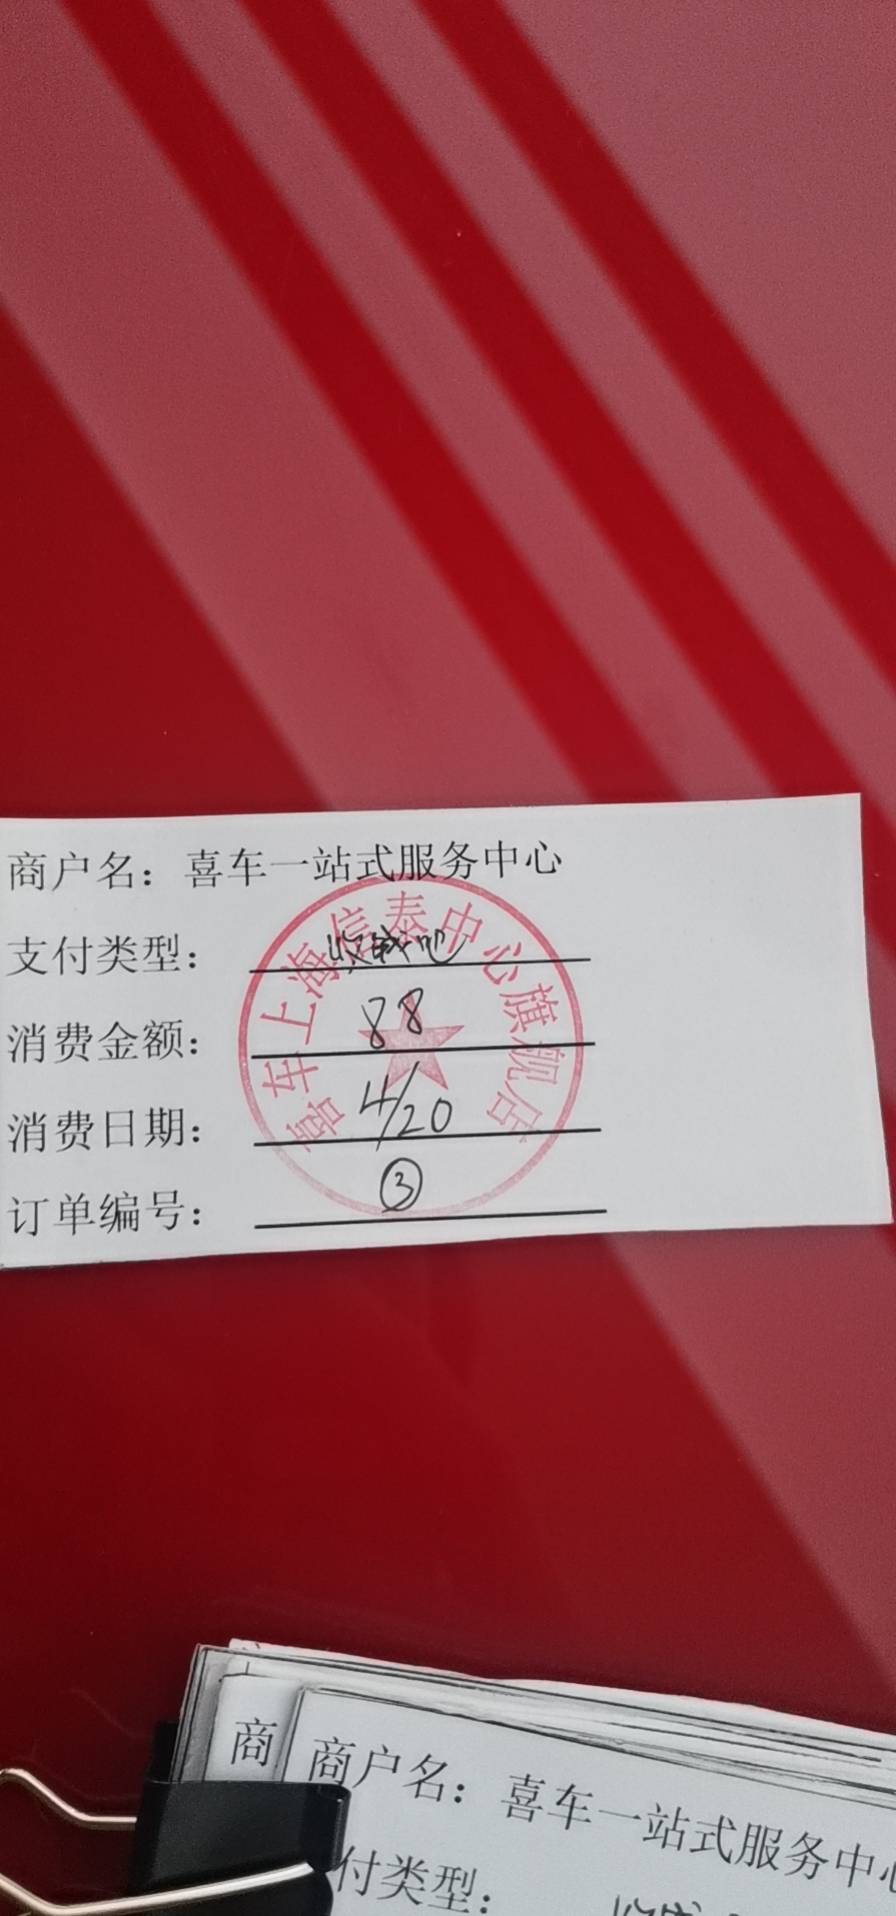 商户名：喜车一站式服务中心
支付类型：收钱吧
消费金额：88
消费日期：4/20
订单编号：③
喜车上海信泰中心旗舰店
商
商户名：喜车一站式服务中心
付类型：